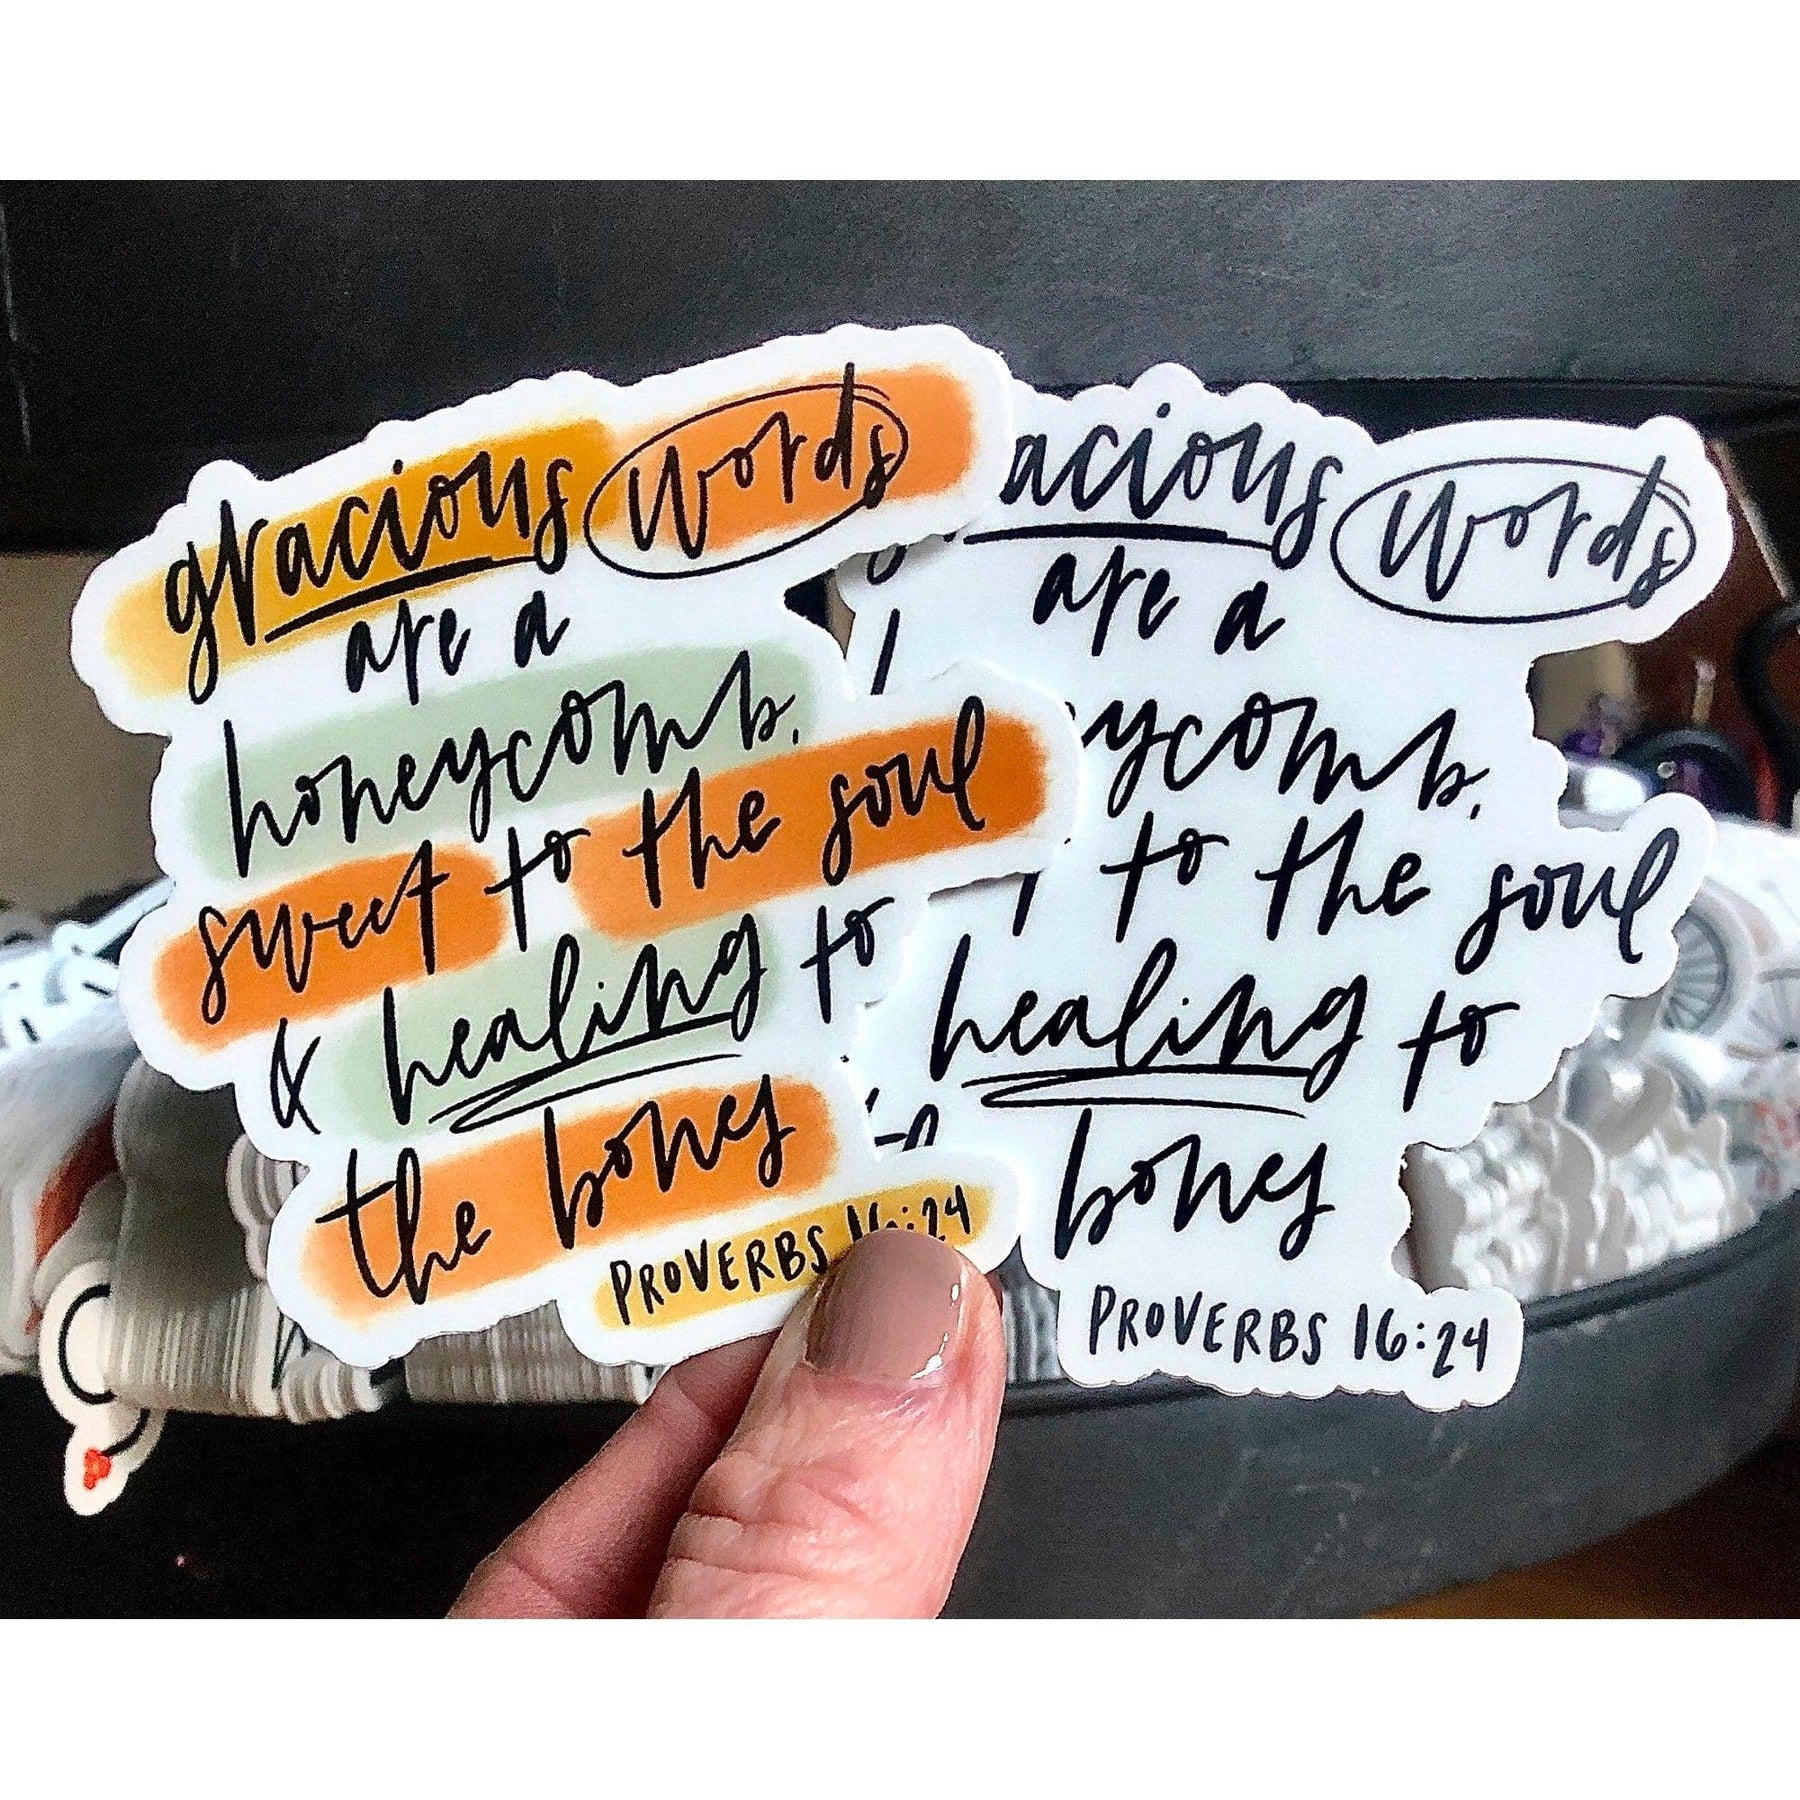 gracious words
are a
honeycomb,
sweet to the soul
& healing to
the bones
PROVERBS 16:24
acious words
are a
ycomb,
to the soul
healing to
bones
PROVERBS 16:24